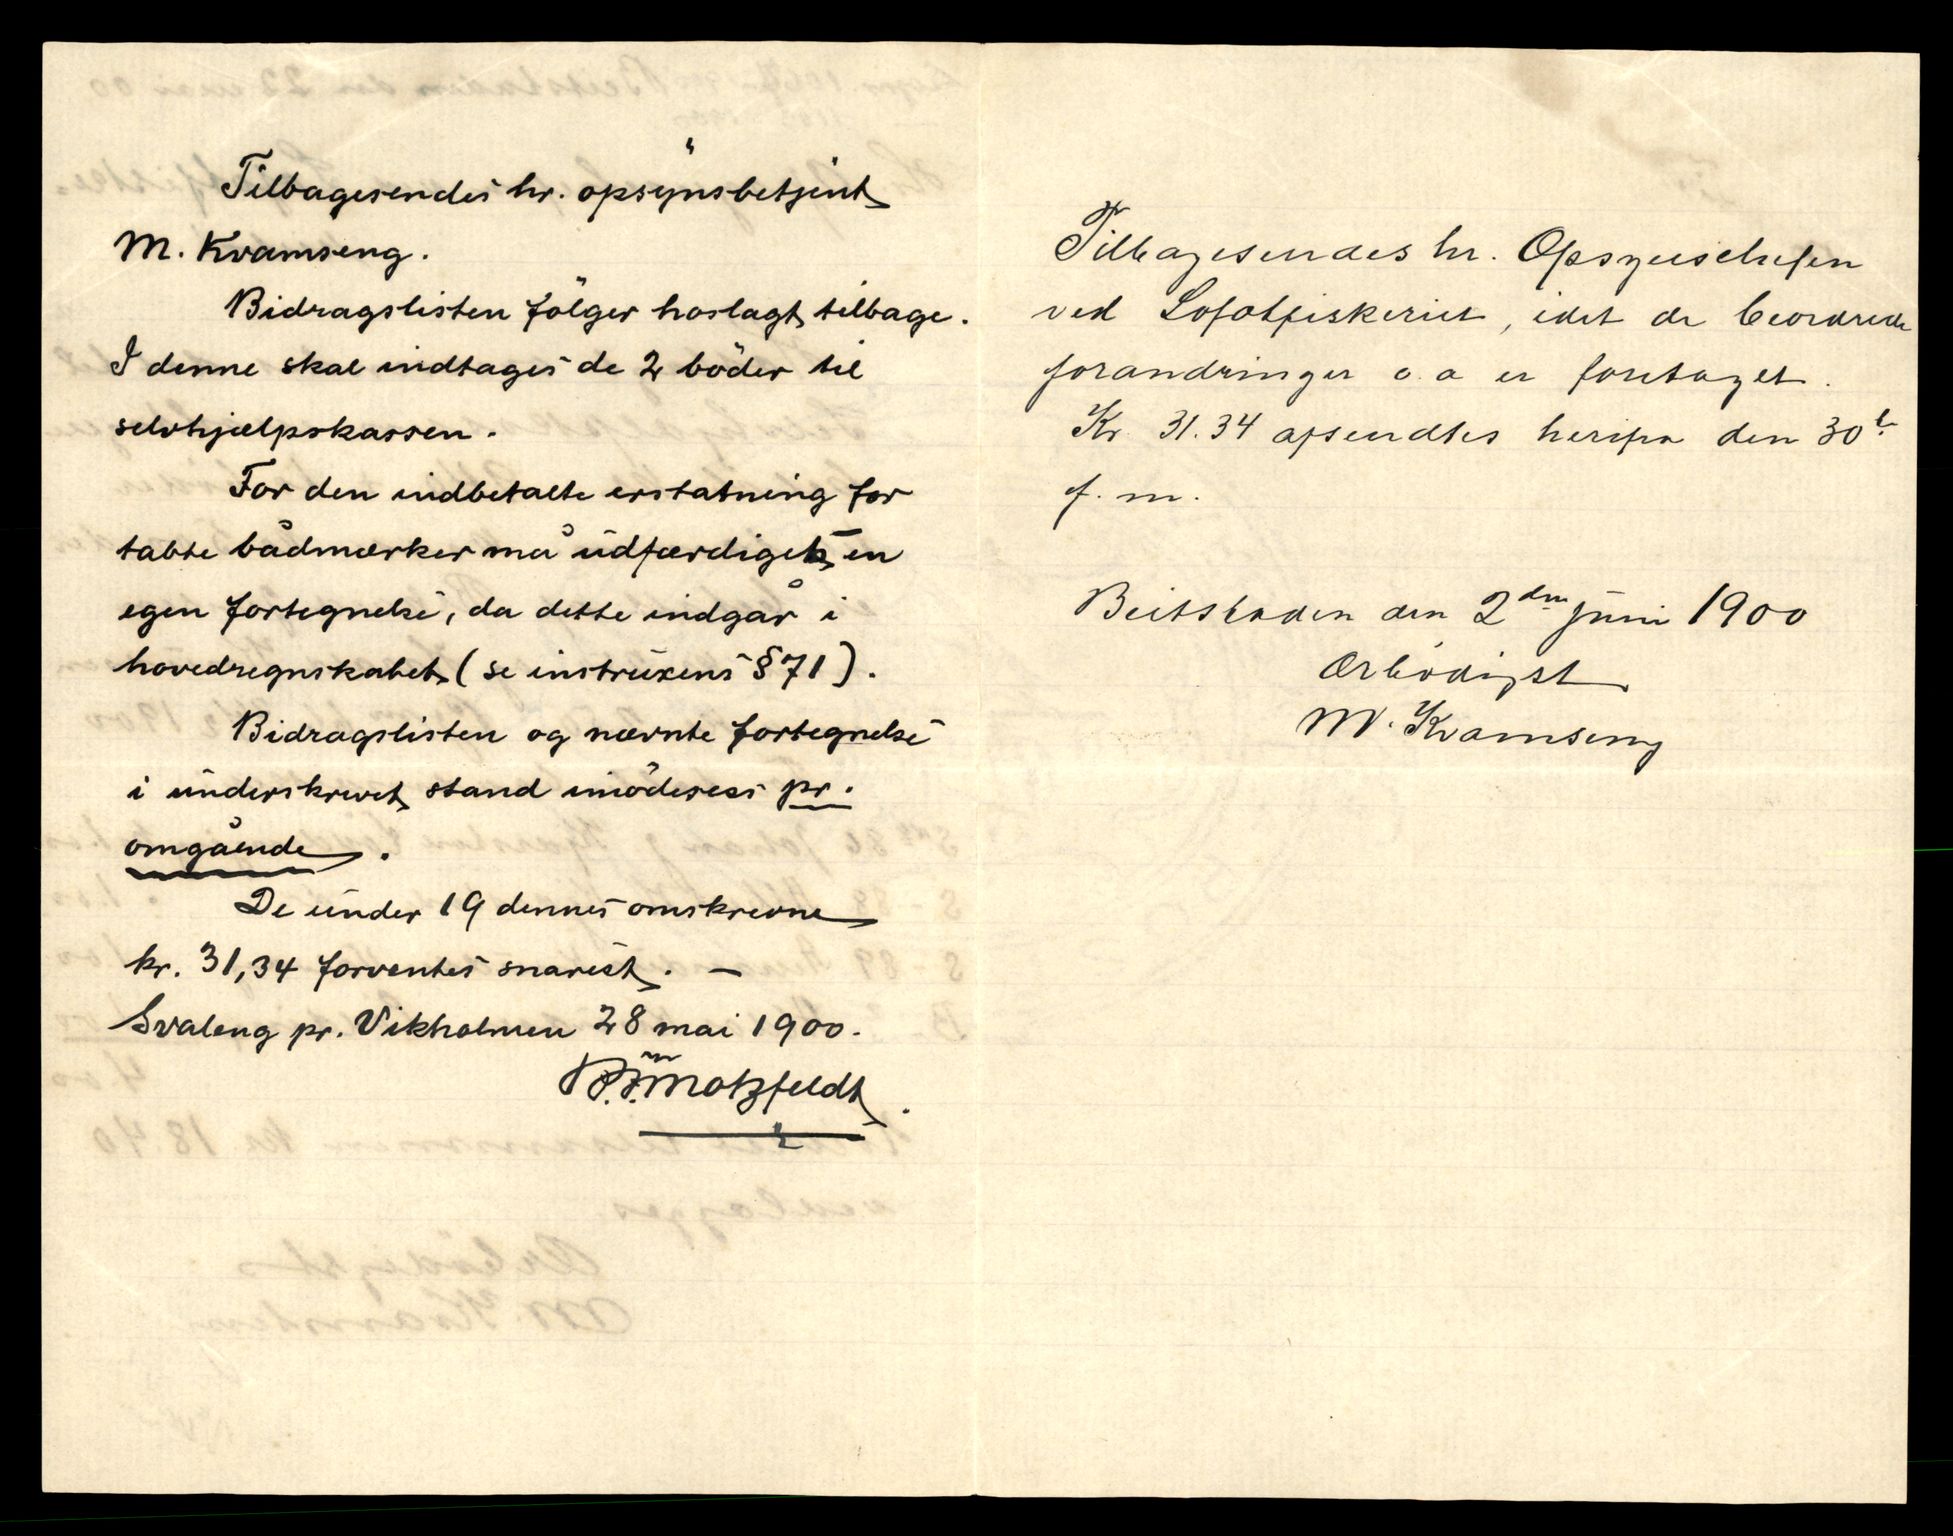 Tilbagesendes hr. opsynsbetjent
M. Kvamseng.
Bidragslisten følger hoslagt tilbage.
I denne skal indtages de 2 bøder til
selvhjælpskassen.
For den indbetalte erstatning for
tabte bådmærker må udfærdiges en
egen fortegnelse, da dette indgår i
hovedregnskabet (se instruxens § 71).
Bidragslisten og nævnte fortegnelse
i underskrevet stand imødesees pr.
omgående.
De under 19 dennes omskrevne
kr. 31,34 forventes snarest. —
Svaleng pr. Vikholmen 28 mai 1900.
Motzfeldt.
Tilbagesendes hr. Opsynschefen
ved Lofotfiskeriet, idet de beordrede
forandringer o.a er foretaget.
Kr. 31.34 afsendtes herifra den 30te
f. m.
Beitstaden den 2den juni 1900
Ærbödigst
M. Kvamseng